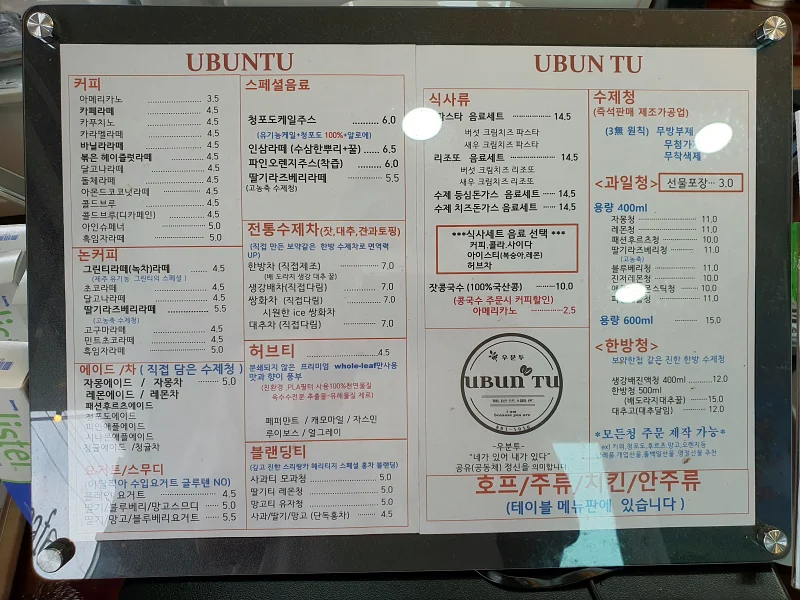 UBUNTU
커피
아메리카노 3.5
카페라떼 4.5
카푸치노 4.5
카라멜라떼 4.5
바닐라라떼 4.5
볶은 헤이즐럿라떼 4.5
달고나라떼 4.5
돌체라떼 4.5
아몬드코코넛라떼 4.5
콜드브루 4.5
콜드브루(디카페인) 4.5
아인슈페너 5.0
흑임자라떼 5.0
논커피
그린티라떼(녹차)라떼 4.5
(제주 유기농 그린티의 스페셜)
초코라떼 4.5
달고나라떼 4.5
딸기라즈베리라떼 5.5
(고농축 수제청)
고구마라떼 4.5
민트초코라떼 4.5
흑임자라떼 5.0
에이드 /차 ( 직접 담은 수제청 )
자몽에이드 / 자몽차 5.0
레몬에이드 / 레몬차
패션후르츠에이드
청포도에이드
파인애플에이드
시나몬애플에이드
청귤에이드 /청귤차
요거트/스무디
(이탈리아 수입요거트 글루텐 NO)
플레인 요거트 4.5
딸기/블루베리/망고스무디 5.0
딸기/망고/블루베리요거트 5.5
스페셜음료
청포도케일주스 6.0
(유기농케일+청포도 100%+알로에)
인삼라떼 (수삼한뿌리+꿀) 6.5
파인오렌지주스(착즙) 6.0
딸기라즈베리라떼 5.5
(고농축 수제청)
전통수제차(잣,대추,견과토핑)
(직접 만든 보약같은 한방 수제차로 면역력 UP)
한방차 (직접제조) 7.0
(배 도라지 생강 대추 꿀)
생강배차(직접다림) 7.0
쌍화차 (직접다림) 7.0
시원한 ice 쌍화차
대추차 (직접다림) 7.0
허브티 4.5
분쇄되지 않은 프리미엄 whole-leaf만사용
맛과 향이 풍부
(친환경 PLA필터 사용100%천연물질
옥수수전분 추출물-유해물질 제로)
페퍼민트 / 캐모마일 / 자스민
루이보스 / 얼그레이
블랜딩티
(깊고 진한 스리랑카 헤리티지 스페셜 홍차 블랜딩)
사과티 모과청 5.0
딸기티 레몬청 5.0
망고티 유자청 5.0
사과/딸기/망고 (단독홍차) 4.5
UBUN TU
식사류
파스타 음료세트 14.5
버섯 크림치즈 파스타
새우 크림치즈 파스타
리조또 음료세트 14.5
버섯 크림치즈 리조또
새우 크림치즈 리조또
수제 등심돈가스 음료세트 14.5
수제 치즈돈가스 음료세트 14.5
***식사세트 음료 선택 ***
커피.콜라.사이다
아이스티(복숭아,레몬)
허브차
잣콩국수 (100%국산콩) 10.0
(콩국수 주문시 커피할인)
아메리카노 2.5
우분투
UBUN TU
I am
because you are
-우분투-
"네가 있어 내가 있다"
공유(공동체) 정신을 의미합니다
수제청
(즉석판매 제조가공업)
(3無 원칙) 무방부제
무첨가
무착색제
<과일청>
선물포장 3.0
용량 400ml
자몽청 11.0
레몬청 11.0
패션후르츠청 10.0
딸기라즈베리청 11.0
(고농축)
블루베리청 11.0
진저레몬청 10.0
10.0
11.0
용량 600ml 15.0
<한방청>
보약한첩 같은 진한 한방 수제청
생강배진액청 400ml 12.0
한방청 500ml
(배도라지대추꿀) 15.0
대추고(대추달임) 12.0
*모든청 주문 제작 가능*
호프/주류/치킨/안주류
(테이블 메뉴판에 있습니다 )